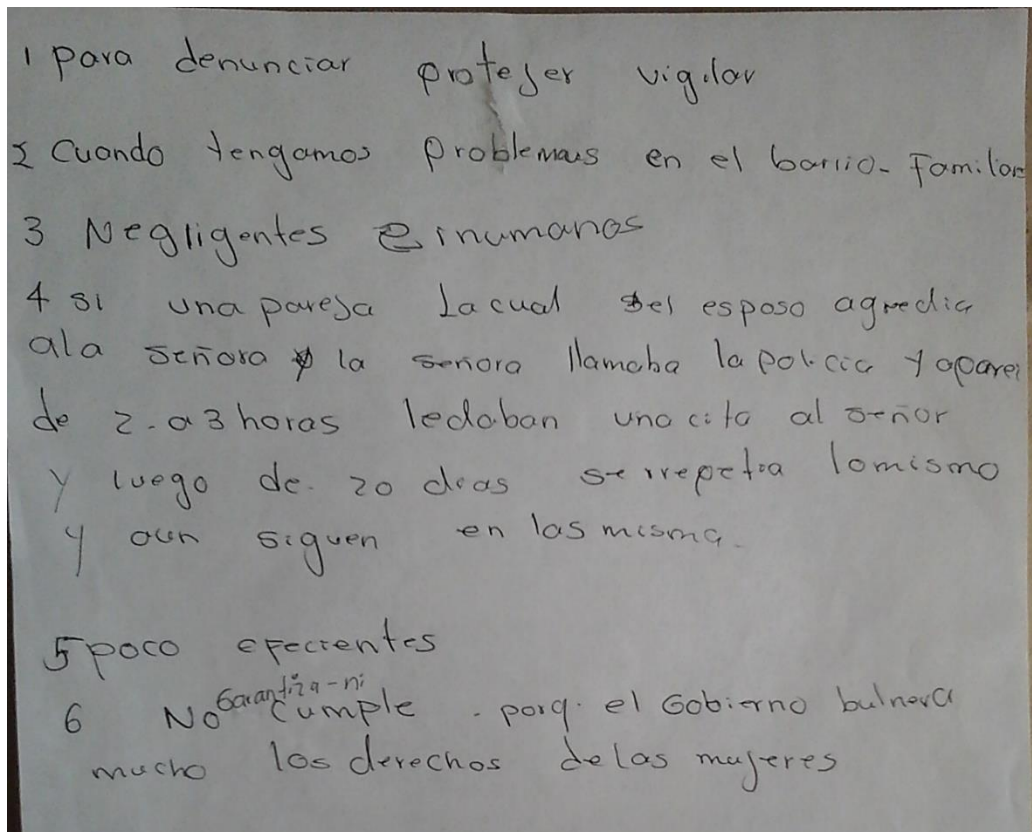 1 para denunciar protejer vigilar
2 Cuando tengamos problemas en el barrio- Familiar
3 Negligentes e inumanos
4 si una pareja la cual el esposo agredia
ala señora y la señora llamaba la policia y aparei
de 2-a 3 horas ledaban una cita al señor
y luego de 20 dias se rrepetia lomismo
y aun siguen en las misma.
5 poco efecientes
6 No Garantiza-ni cumple - porq. el Gobierno bulnera
mucho los derechos delas mujeres